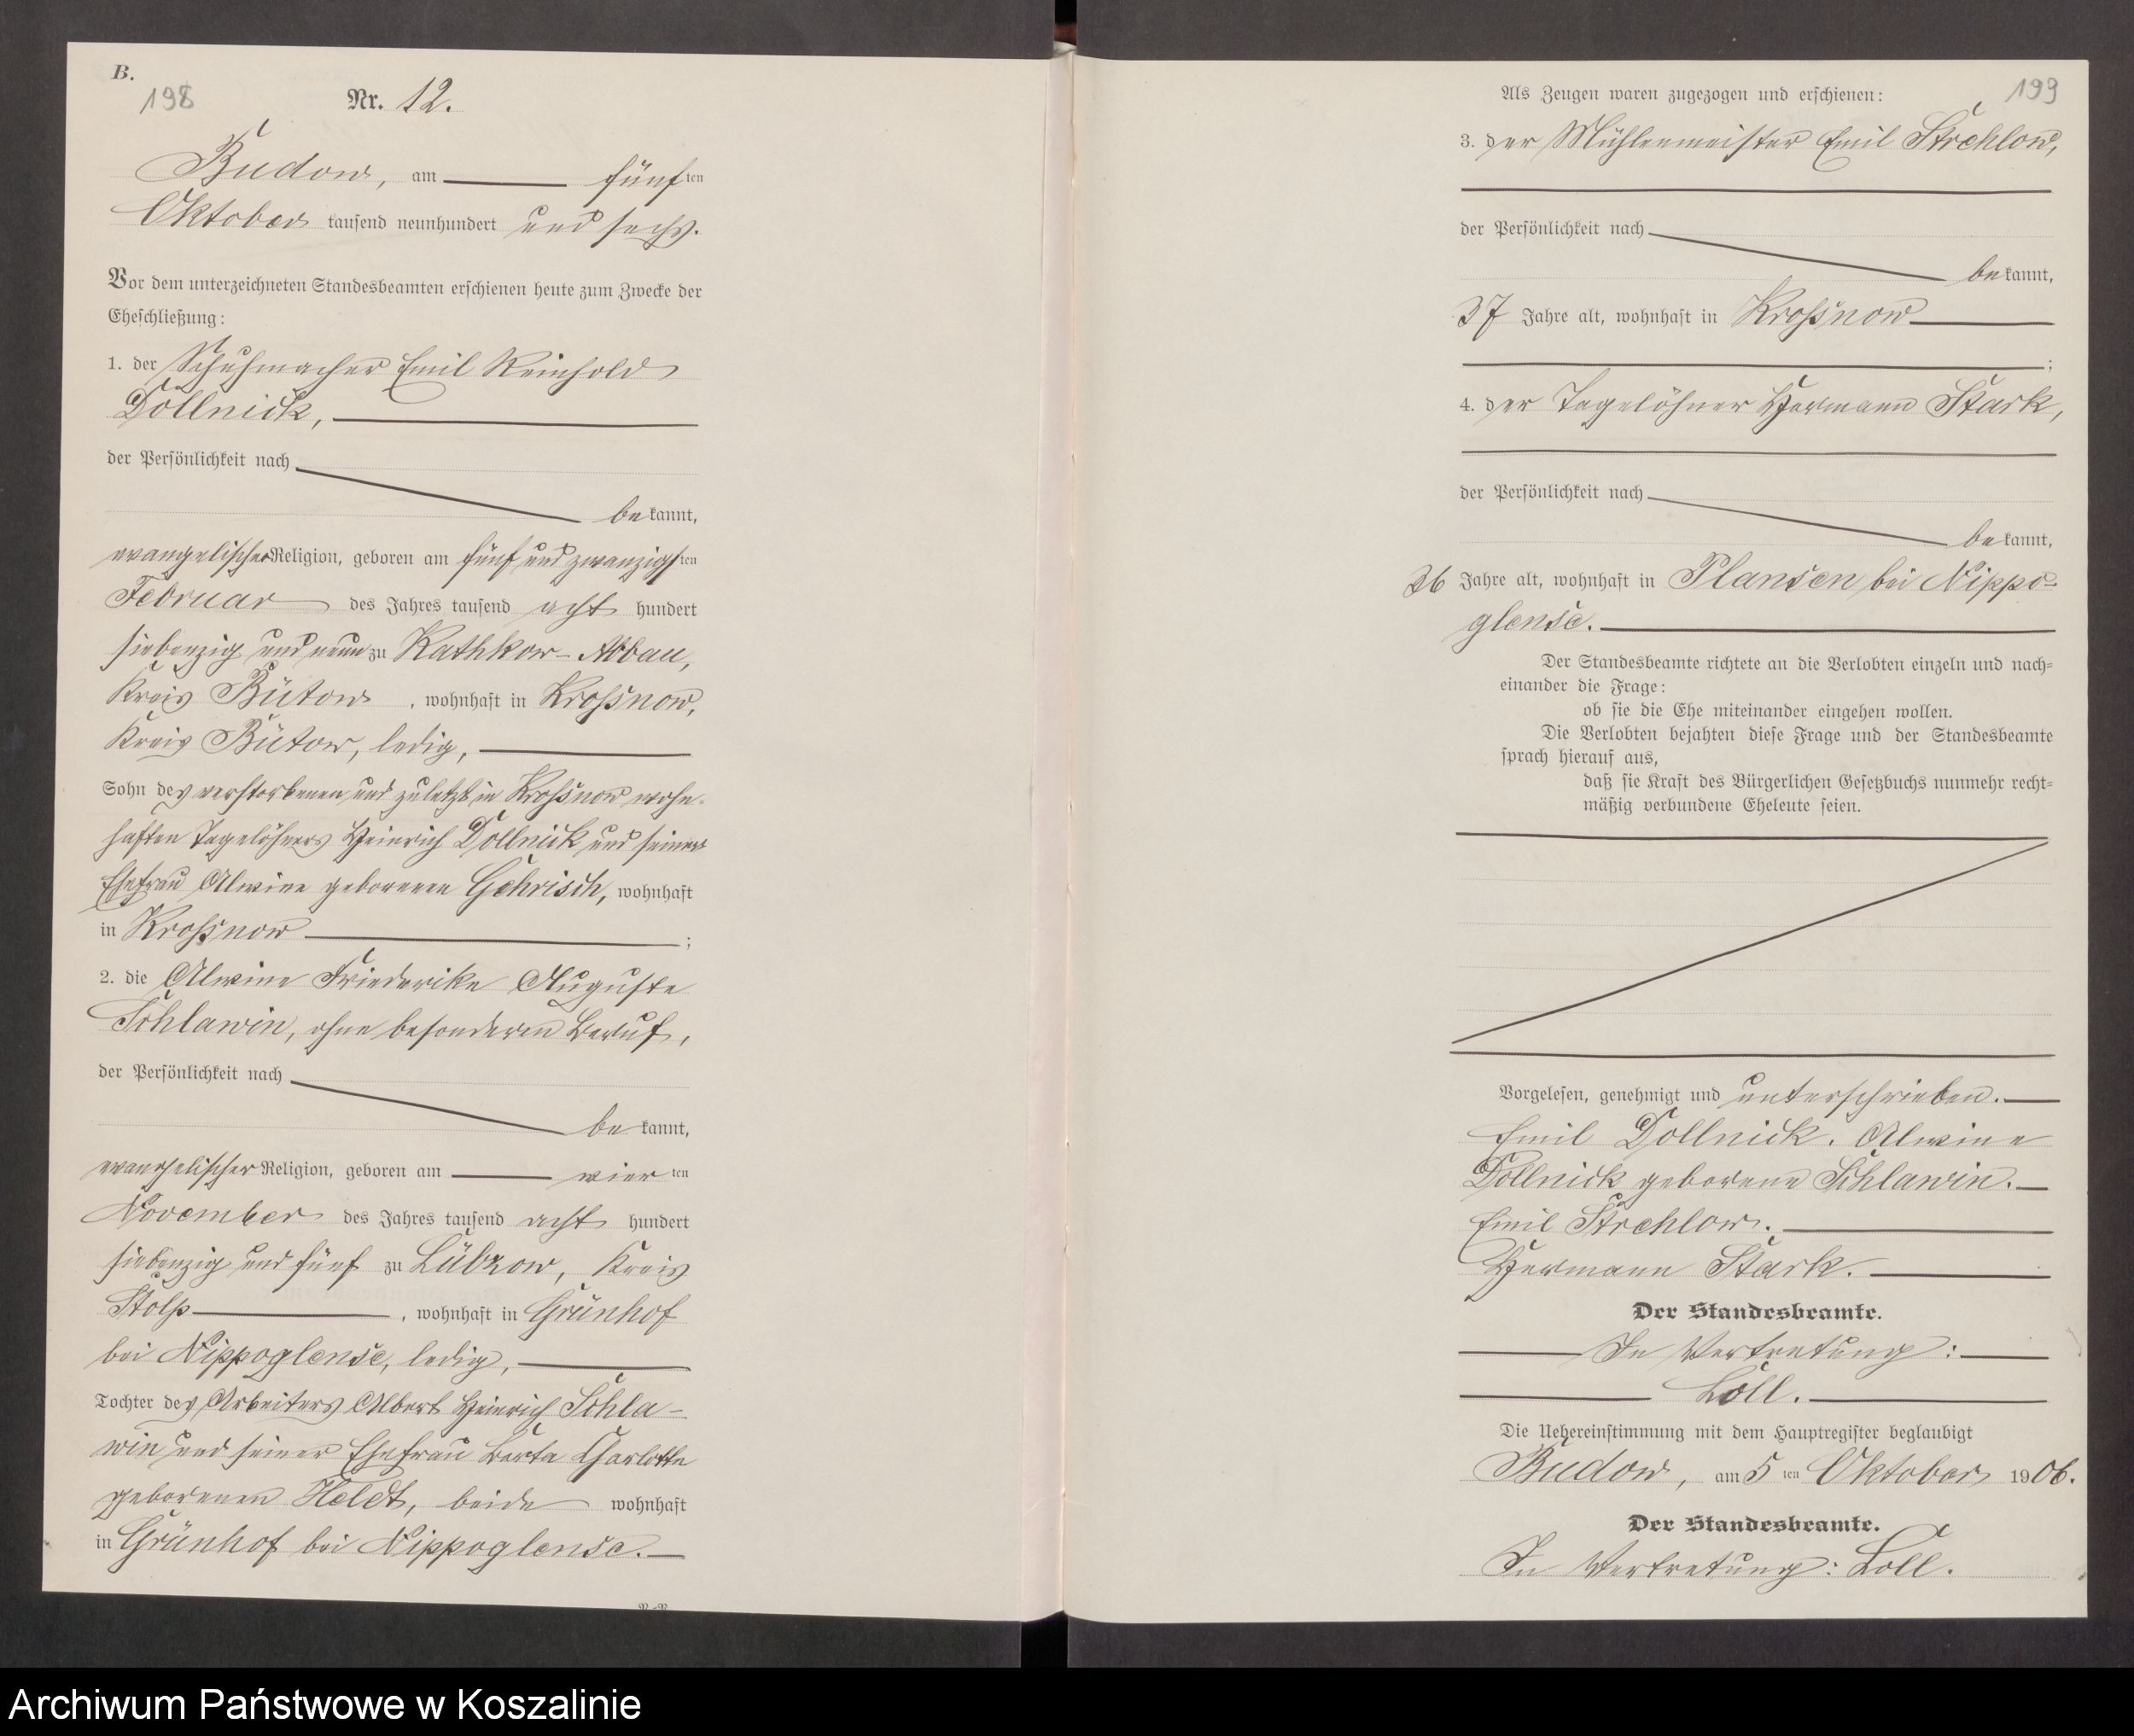 B.
198
Nr. 12.
Budow, am fünften
Oktober tausend neunhundert und sechs.
Vor dem unterzeichneten Standesbeamten erschienen heute zum Zwecke der
Eheschließung:
1. der Schuhmacher Emil Reinhold
Döllnick,
der Persönlichkeit nach
bekannt,
evangelischer Religion, geboren am fünf und zwanzigsten
Februar des Jahres tausend acht hundert
siebenzig und neun zu Kathkow-Abbau,
Kreis Bütow, wohnhaft in Kroßnow,
Kreis Bütow, ledig,
Sohn des verstorbenen und zuletzt in Kroßnow wohn-
haften Tagelöhners Heinrich Döllnick und seiner
Ehefrau Alwine geborenen Gehrisch, wohnhaft
in Kroßnow;
2. die Alwine Friederike Auguste
Schlawin, ohne besonderen Beruf,
der Persönlichkeit nach
bekannt,
evangelischer Religion, geboren am vierten
November des Jahres tausend acht hundert
siebenzig und fünf zu Lübzow, Kreis
Stolp, wohnhaft in Grünhof
bei Nippoglense, ledig,
Tochter des Arbeiters Albert Heinrich Schla-
win und seiner Ehefrau Berta Charlotte
geborenen Heldt, beide wohnhaft
in Grünhof bei Nippoglense.
199
Als Zeugen waren zugezogen und erschienen:
3. der Mühlenmeister Emil Strehlow,
der Persönlichkeit nach
bekannt,
37 Jahre alt, wohnhaft in Kroßnow
;
4. der Tagelöhner Hermann Stark,
der Persönlichkeit nach
bekannt,
36 Jahre alt, wohnhaft in Plansen bei Nippo-
glense.
Der Standesbeamte richtete an die Verlobten einzeln und nach-
einander die Frage:
ob sie die Ehe miteinander eingehen wollen.
Die Verlobten bejahten diese Frage und der Standesbeamte
sprach hierauf aus,
daß sie Kraft des Bürgerlichen Gesetzbuchs nunmehr recht-
mäßig verbundene Eheleute seien.
Vorgelesen, genehmigt und unterschrieben.
Emil Döllnick. Alwine
Döllnick geborene Schlawin.
Emil Strehlow.
Hermann Stark.
Der Standesbeamte.
In Vertretung:
Loll.
Die Uebereinstimmung mit dem Hauptregister beglaubigt
Budow, am 5ten Oktober 1906.
Der Standesbeamte.
In Vertretung: Loll.
Archiwum Państwowe w Koszalinie